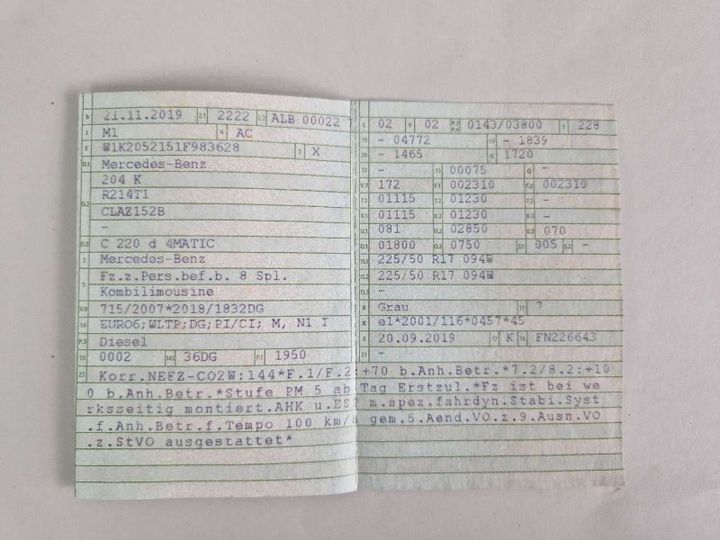 B 21.11.2019 2.1 2222 2.2 ALB 00022 7
J M1 4 AC
E W1K2052151F983628 3 X
D.1 Mercedes-Benz
D.2 204 K
R214T1
CLAZ152B
-
D.3 C 220 d 4MATIC
2 Mercedes-Benz
5 Fz.z.Pers.bef.b. 8 Spl.
Kombilimousine
V.9 715/2007*2018/1832DG
14 EURO6;WLTP;DG;PI/CI; M, N1 I
P.3 Diesel
10 0002 14.1 36DG P.1 1950
L 02 9 02 P.2 P.4 0143/03800 T 228
18 - 04772 19 - 1839
20 - 1465 G 1720
12 - 13 00075 Q -
V.7 172 F.1 002310 F.2 002310
7.1 01115 7.2 01230 7.3 -
8.1 01115 8.2 01230 8.3 -
U.1 081 U.2 02850 U.3 070
O.1 01800 O.2 0750 S.1 005 S.2 -
15.1 225/50 R17 094W
15.2 225/50 R17 094W
15.3 -
R Grau 11 7
K e1*2001/116*0457*45
6 20.09.2019 17 K 16 FN226643
21 -
22 Korr.NEFZ-CO2W:144*F.1/F.2:+70 b.Anh.Betr.*7.2/8.2:+10
0 b.Anh.Betr.*Stufe PM 5 ab Tag Erstzul.*Fz ist bei we
rksseitig montiert.AHK u.ESP m.spez.fahrdyn.Stabi.Syst
.f.Anh.Betr.f.Tempo 100 km/h gem.5.Aend.VO.z.9.Ausn.VO
.z.StVO ausgestattet*